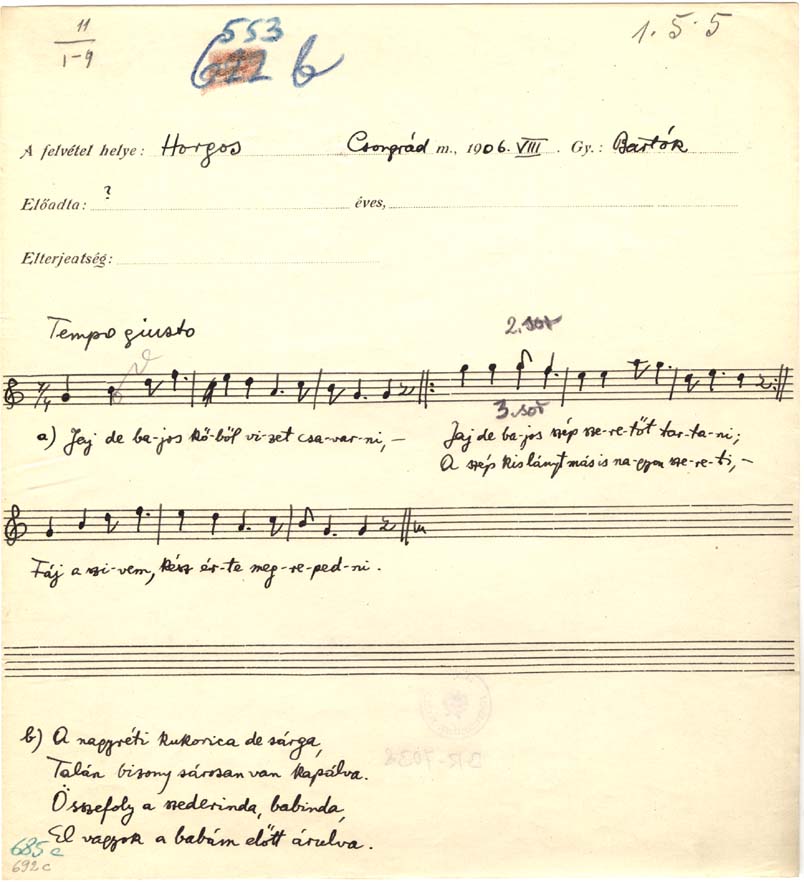 11
1-9
553
622 b
1. 5. 5
A felvétel helye: Horgos Csongrád m., 1906. VIII. Gy.: Bartók
Előadta: ? éves,
Elterjeatség:
Tempo giusto
2. sor
3. sor
a) Jaj de ba-jos kő-ből vi-zet csa-var-ni, – Jaj de ba-jos szép sze-re-tőt tar-ta-ni;
A szép kislányt más is na-gyon sze-re-ti, –
Fáj a szi-vem, kész ér-te meg-re-ped-ni.
b) A nagyréti kukorica de sárga,
Talán bizony sárosan van kapálva.
Összefoly a szederinda, babinda,
El vagyok a babám előtt árulva.
685 c
692 c